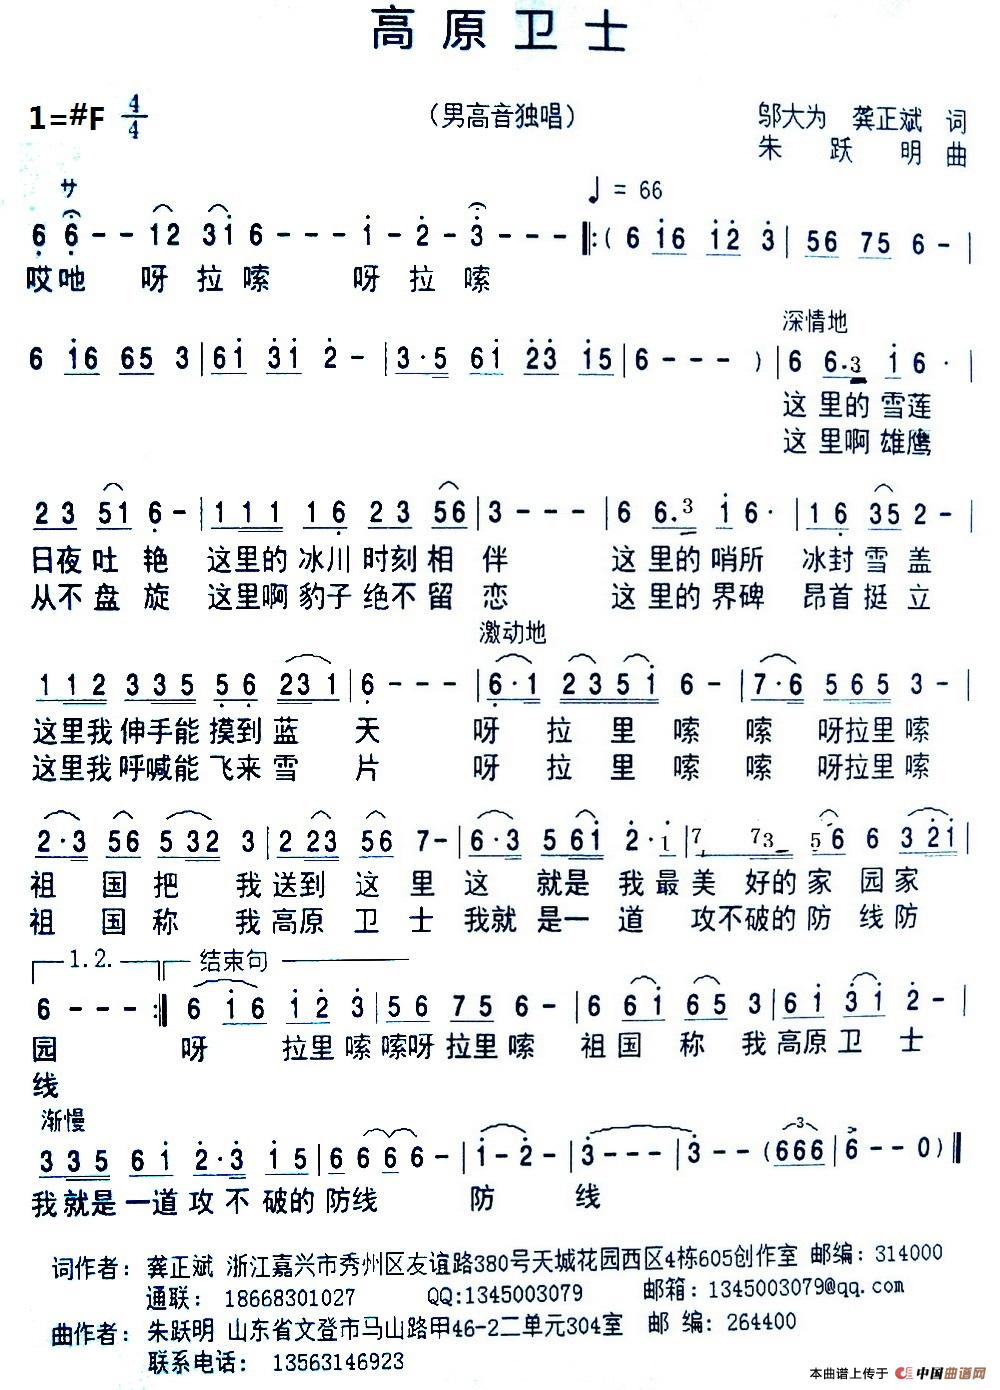 高原卫士
1=#F 4/4 （男高音独唱） 邬大为 龚正斌 词
朱跃明 曲
サ ♩= 66
6 6 - - 12 31 6 - - - 1 - 2 - 3 - - - ‖:( 6 16 12 3 | 56 75 6 - |
哎吔 呀拉嗦 呀拉嗦
深情地
6 16 65 3 | 61 31 2 - | 3·5 61 23 15 | 6 - - - ) | 6 6·3 16· |
这里的雪莲
这里啊雄鹰
23 51 6 - | 111 16 23 56 | 3 - - - | 6 6·3 16· | 16 35 2 - |
日夜吐艳 这里的冰川时刻相伴 这里的哨所 冰封雪盖
从不盘旋 这里啊豹子绝不留恋 这里的界碑 昂首挺立
激动地
112 335 56 231 | 6 - - - | 6·1 2351 6 - | 7·6 565 3 - |
这里我伸手能摸到蓝天 呀拉里嗦嗦 呀拉里嗦
这里我呼喊能飞来雪片 呀拉里嗦嗦 呀拉里嗦
2·3 56 532 3 | 2 23 56 7 - | 6·3 561 2·1 | 7 73 56 6 321 |
祖国把我送到这里这就是我最美好的家园家
祖国称我高原卫士我就是一道攻不破的防线防
1.2. 结束句
6 - - - :‖ 6 16 12 3 | 56 75 6 - | 6 61 65 3 | 61 31 2 - |
园 呀 拉里嗦嗦呀拉里嗦 祖国称我高原卫士
线
渐慢
335 61 2·3 15 | 6 66 6 - | 1 - 2 - | 3 - - - | 3 - - ( 666 | 6 - - 0 ) ‖
我就是一道攻不破的防线 防线
词作者：龚正斌 浙江嘉兴市秀州区友谊路380号天城花园西区4栋605创作室 邮编：314000
通联：18668301027 QQ:1345003079 邮箱：1345003079@qq.com
曲作者：朱跃明 山东省文登市马山路甲46-2二单元304室 邮编：264400
联系电话：13563146923
本曲谱上传于 中国曲谱网